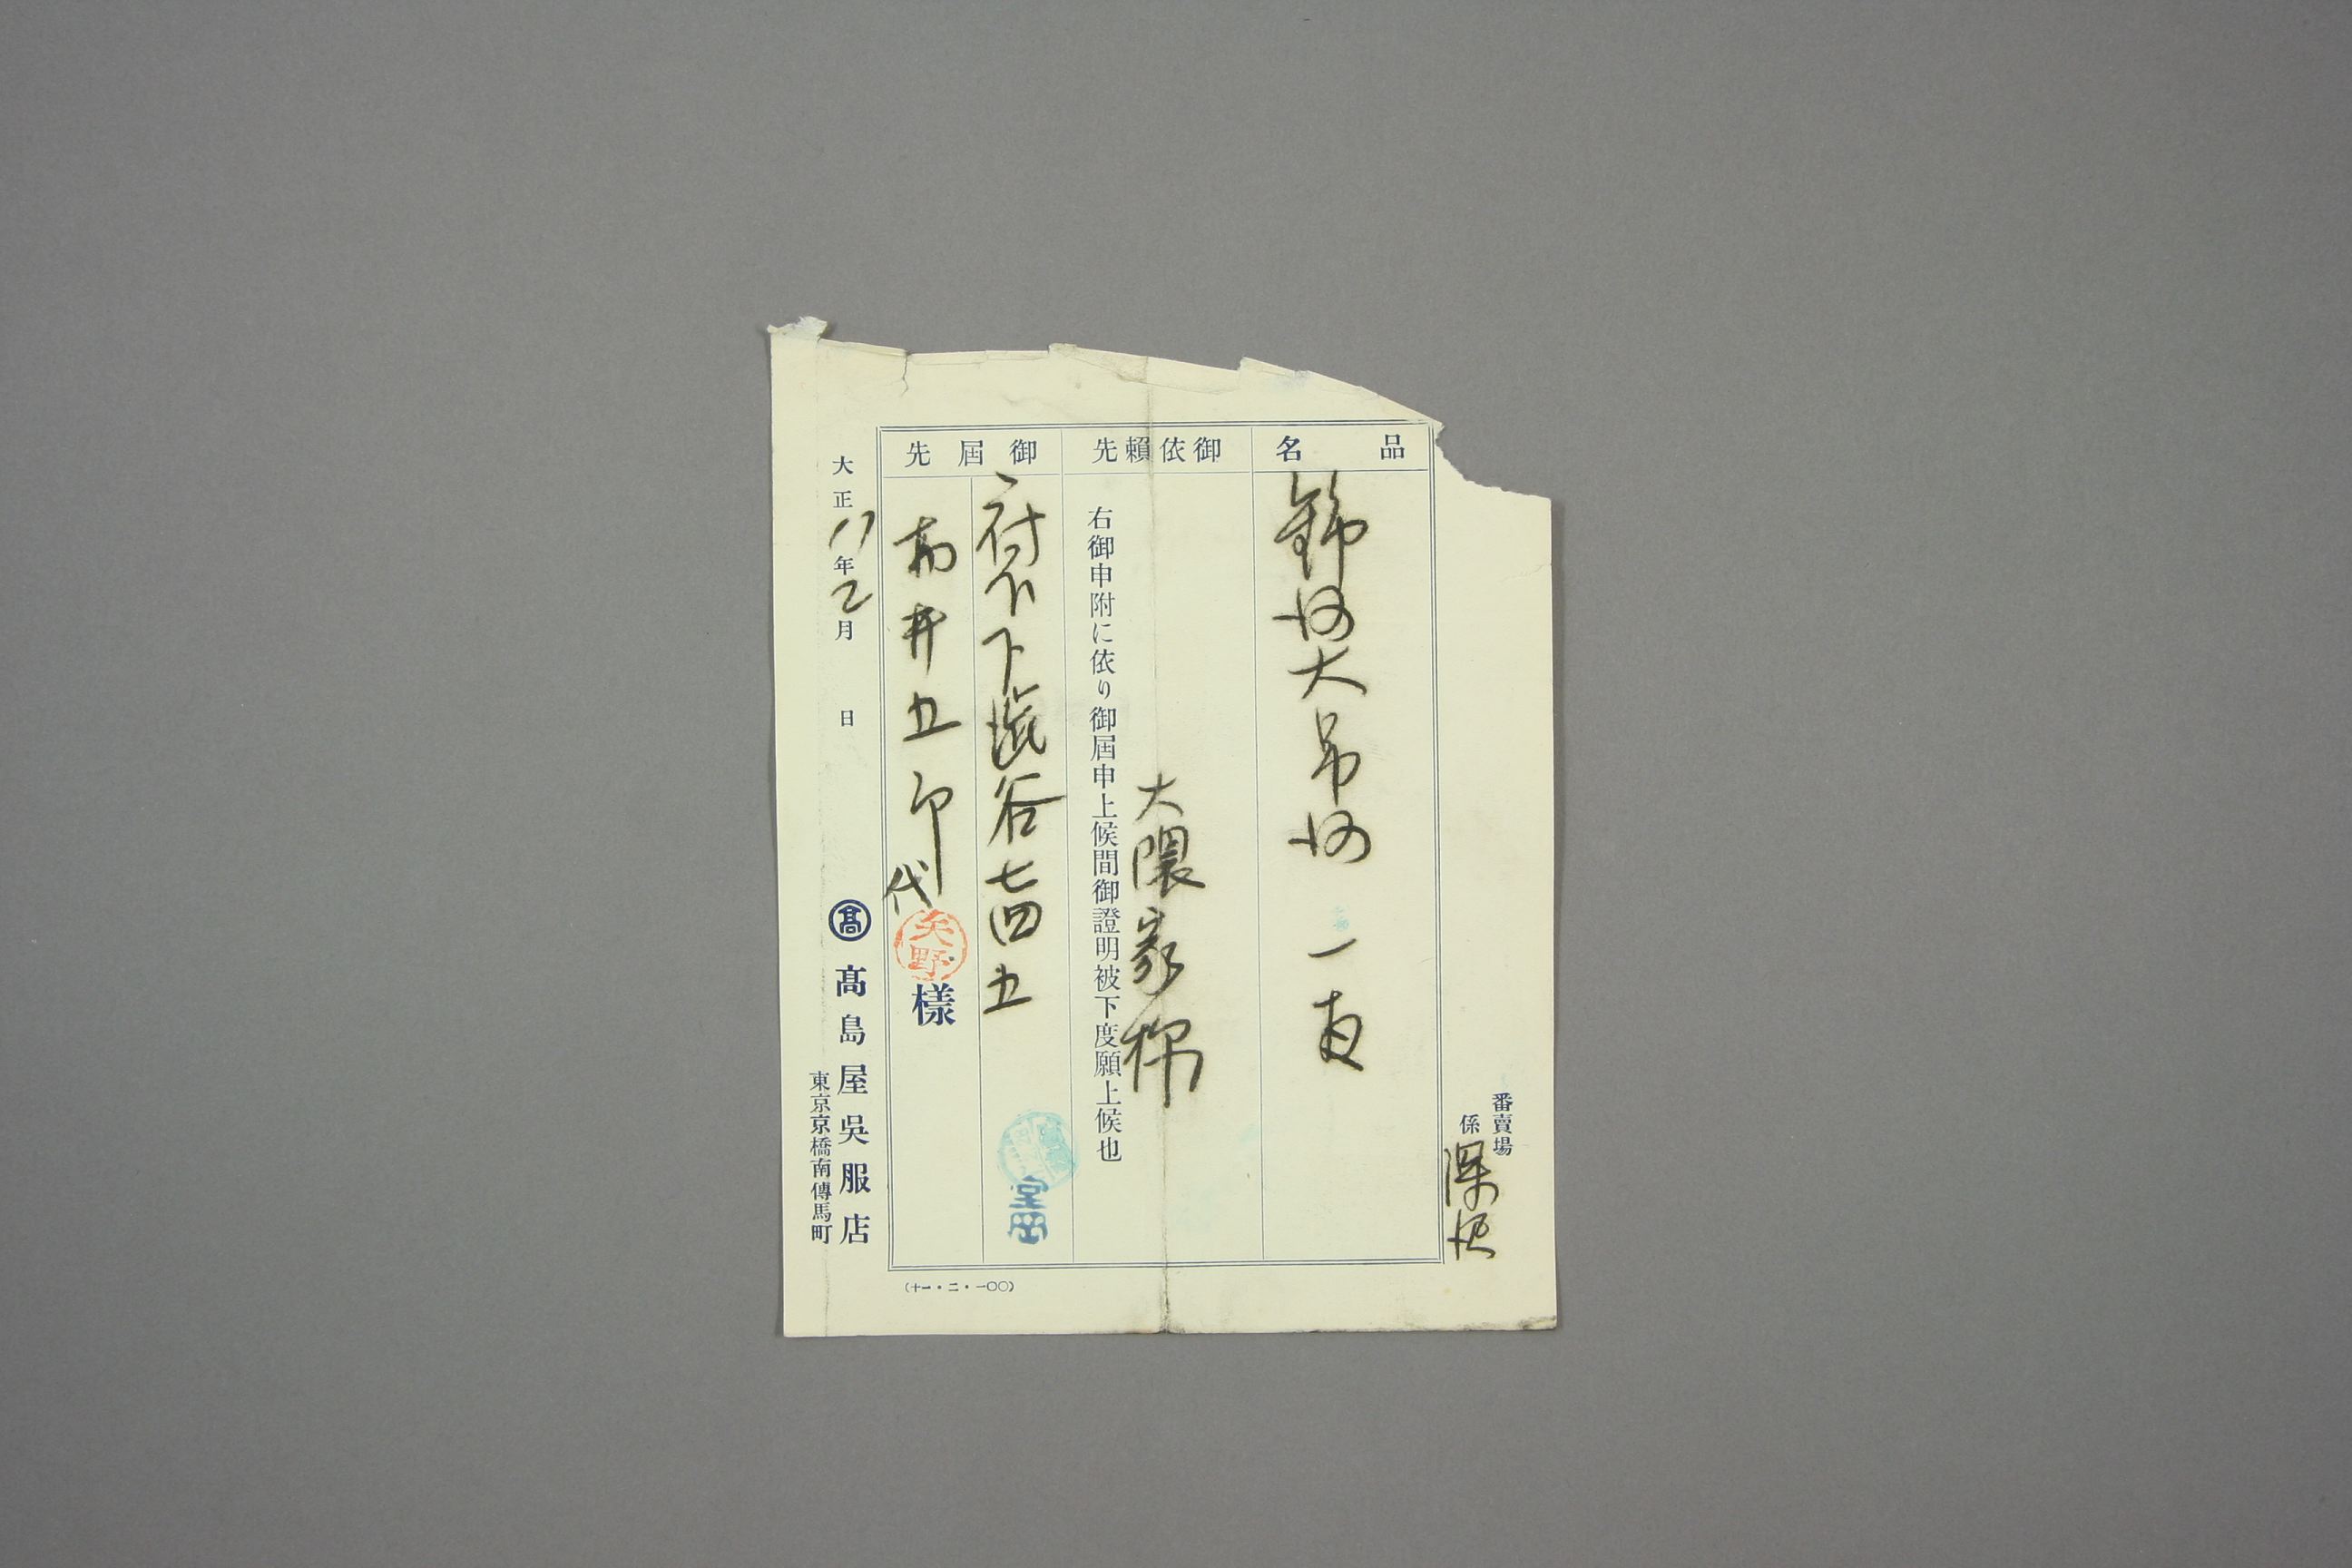 番賣場
係
品名
錦 大 一
御依賴先
大隈家様
右御申附に依り御屆申上候間御證明被下度願上候也
御屆先
府下下渋谷七四五
高井五郎
代
矢野
樣
室岡
大正11年2月 日
髙
髙島屋吳服店
東京京橋南傳馬町
(十一・二・一〇〇)